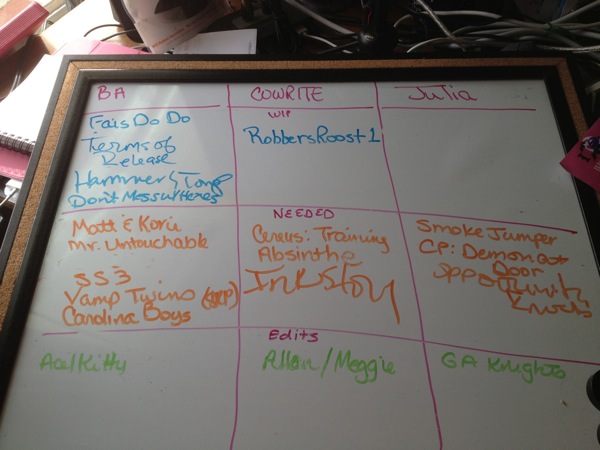 BA
COWRITE
Julia
WIP
Fais Do Do
Terms of
Release
Hammer & Tong
Don't Mess w/ Heres
Robbers Roost 1
NEEDED
Matt & Kori
Mr. Untouchable
SS3
Vamp Twins
Carolina Boys
Cereus: Training
Absinthe
Ink Story
Smoke Jumper
CP: Demon at
Door
Opportunity
Knocks
Edits
Acel Kitty
Allan / Meggie
GA Knights